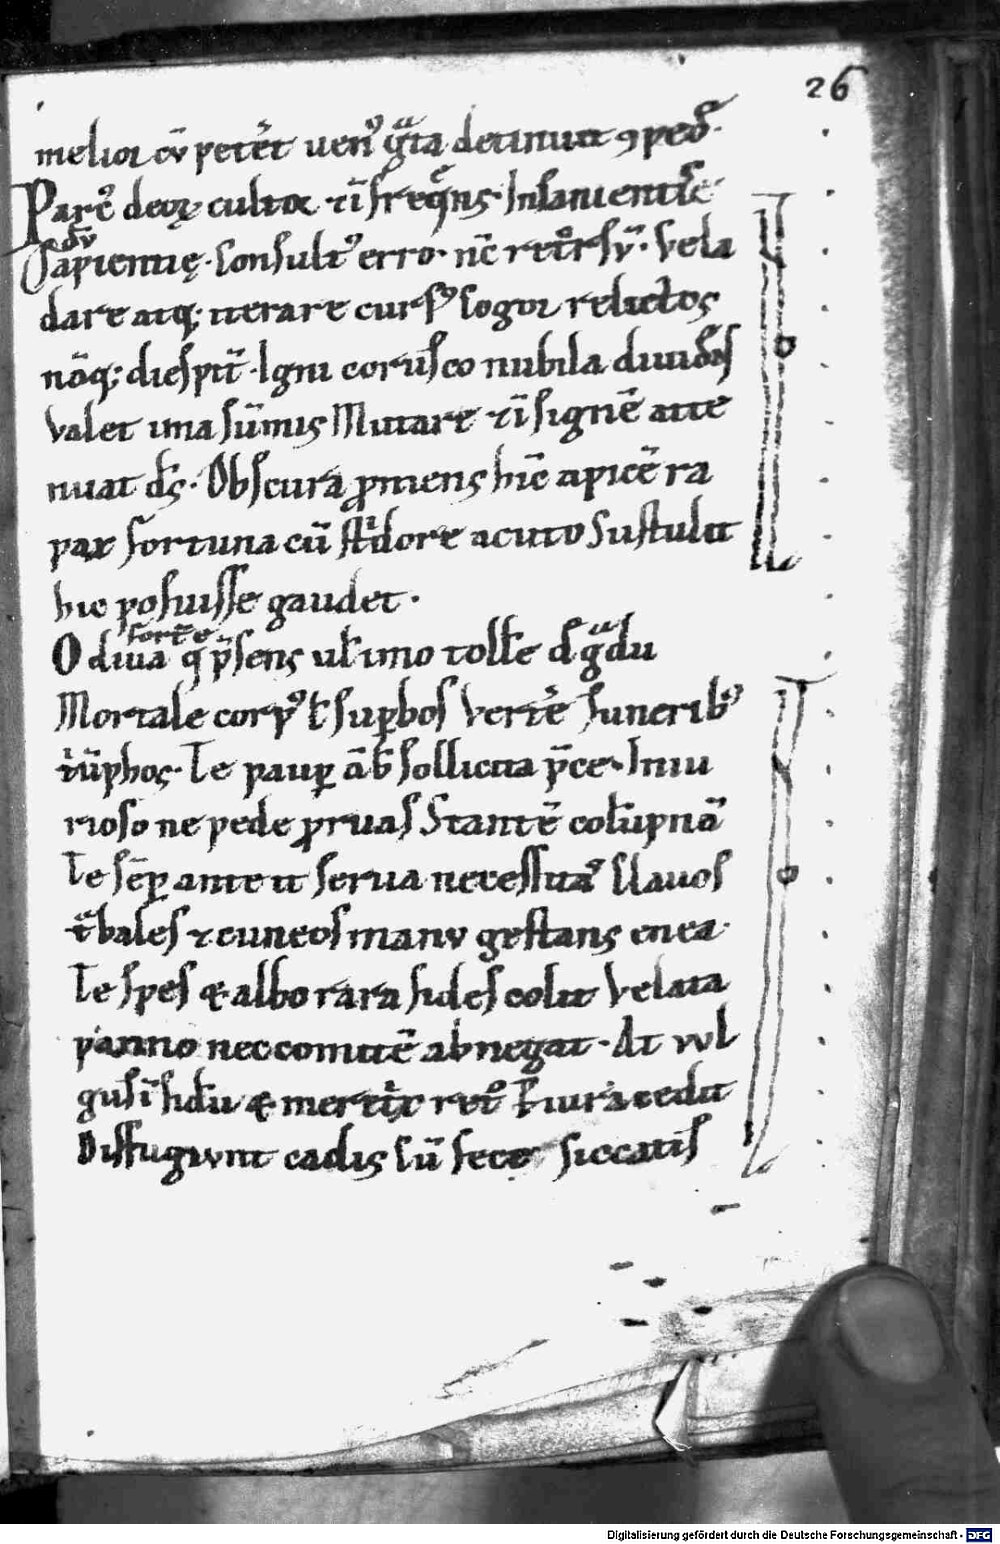 26
melior cū peteret uenꝰ g̃ta detinuit ꝯpeð.
Parcꝰ deoꝝ cultor ⁊ ĩfreq̃ns. Insanientiſ
dū
Sapientię. Conſultꝰ erro. nc̄ retrorſū. Vela
dare atq; iterare curſꝰ Cogor relictoſ
nāq; dieſpit̃. Igni coruſco nubila diuidenſ
Valet ima sūmis Mutare ⁊ ĩſignē atte
nuat dſ̄. Obſcura ꝓmens hīc apicē ra
pax fortuna cū ſtͥdore acuto Suſtulit
hic poſuiſſe gaudet.
forte
O diua q̄ p̄ſens uł imo tolłe d̄ gͣdu
Mortale corpꝰ ł ſuꝑbos Vertẽ Funeribꝰ
tͥūphos. Te pauꝑ āb̄ ſollicita p̄ce. Iniu
rioſo ne pede ꝓruaſ Stantē colūpnā
Te ſēꝑ ante it ſerua neceſſitaſ Clauoſ
tͣbaleſ ⁊ cuneoſ manu geſtans enea.
Te ſpeſ & albo rara fideſ colit Velata
panno nec comitē abnegat. At wl
guſ ĩfidū & meretͥx retͦ ꝑiura cedit
Diffugiunt cadis Cū fece ſiccatiſ
Digitalisierung gefördert durch die Deutsche Forschungsgemeinschaft - DFG